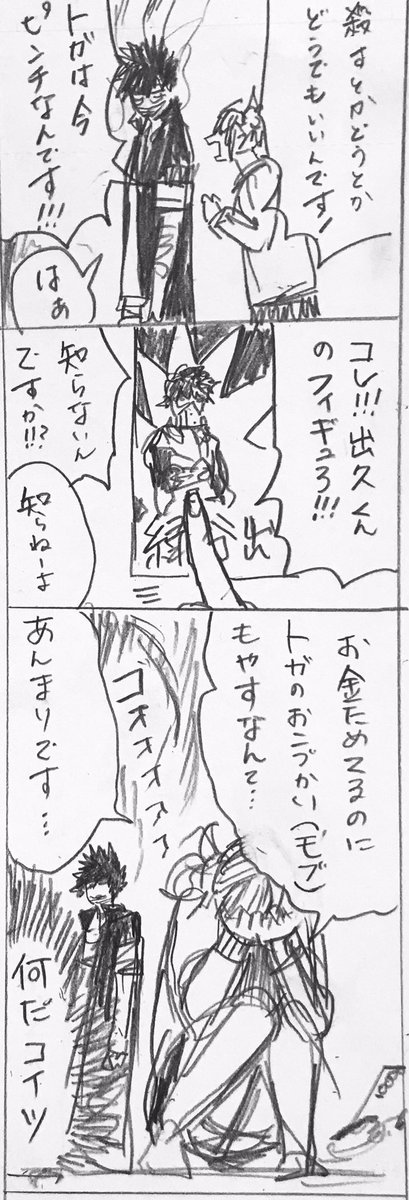 殺すとかどうとか
どうでもいいんです!
トガは今
ピンチなんです!!!
はぁ
コレ!!!出久くん
のフィギュア!!!
知らないん
ですか!!?
知らねーよ
お金ためてるのに
トガのおこづかい(モブ)
もやすなんて…
コオオオォォ
あんまりです…
何だコイツ